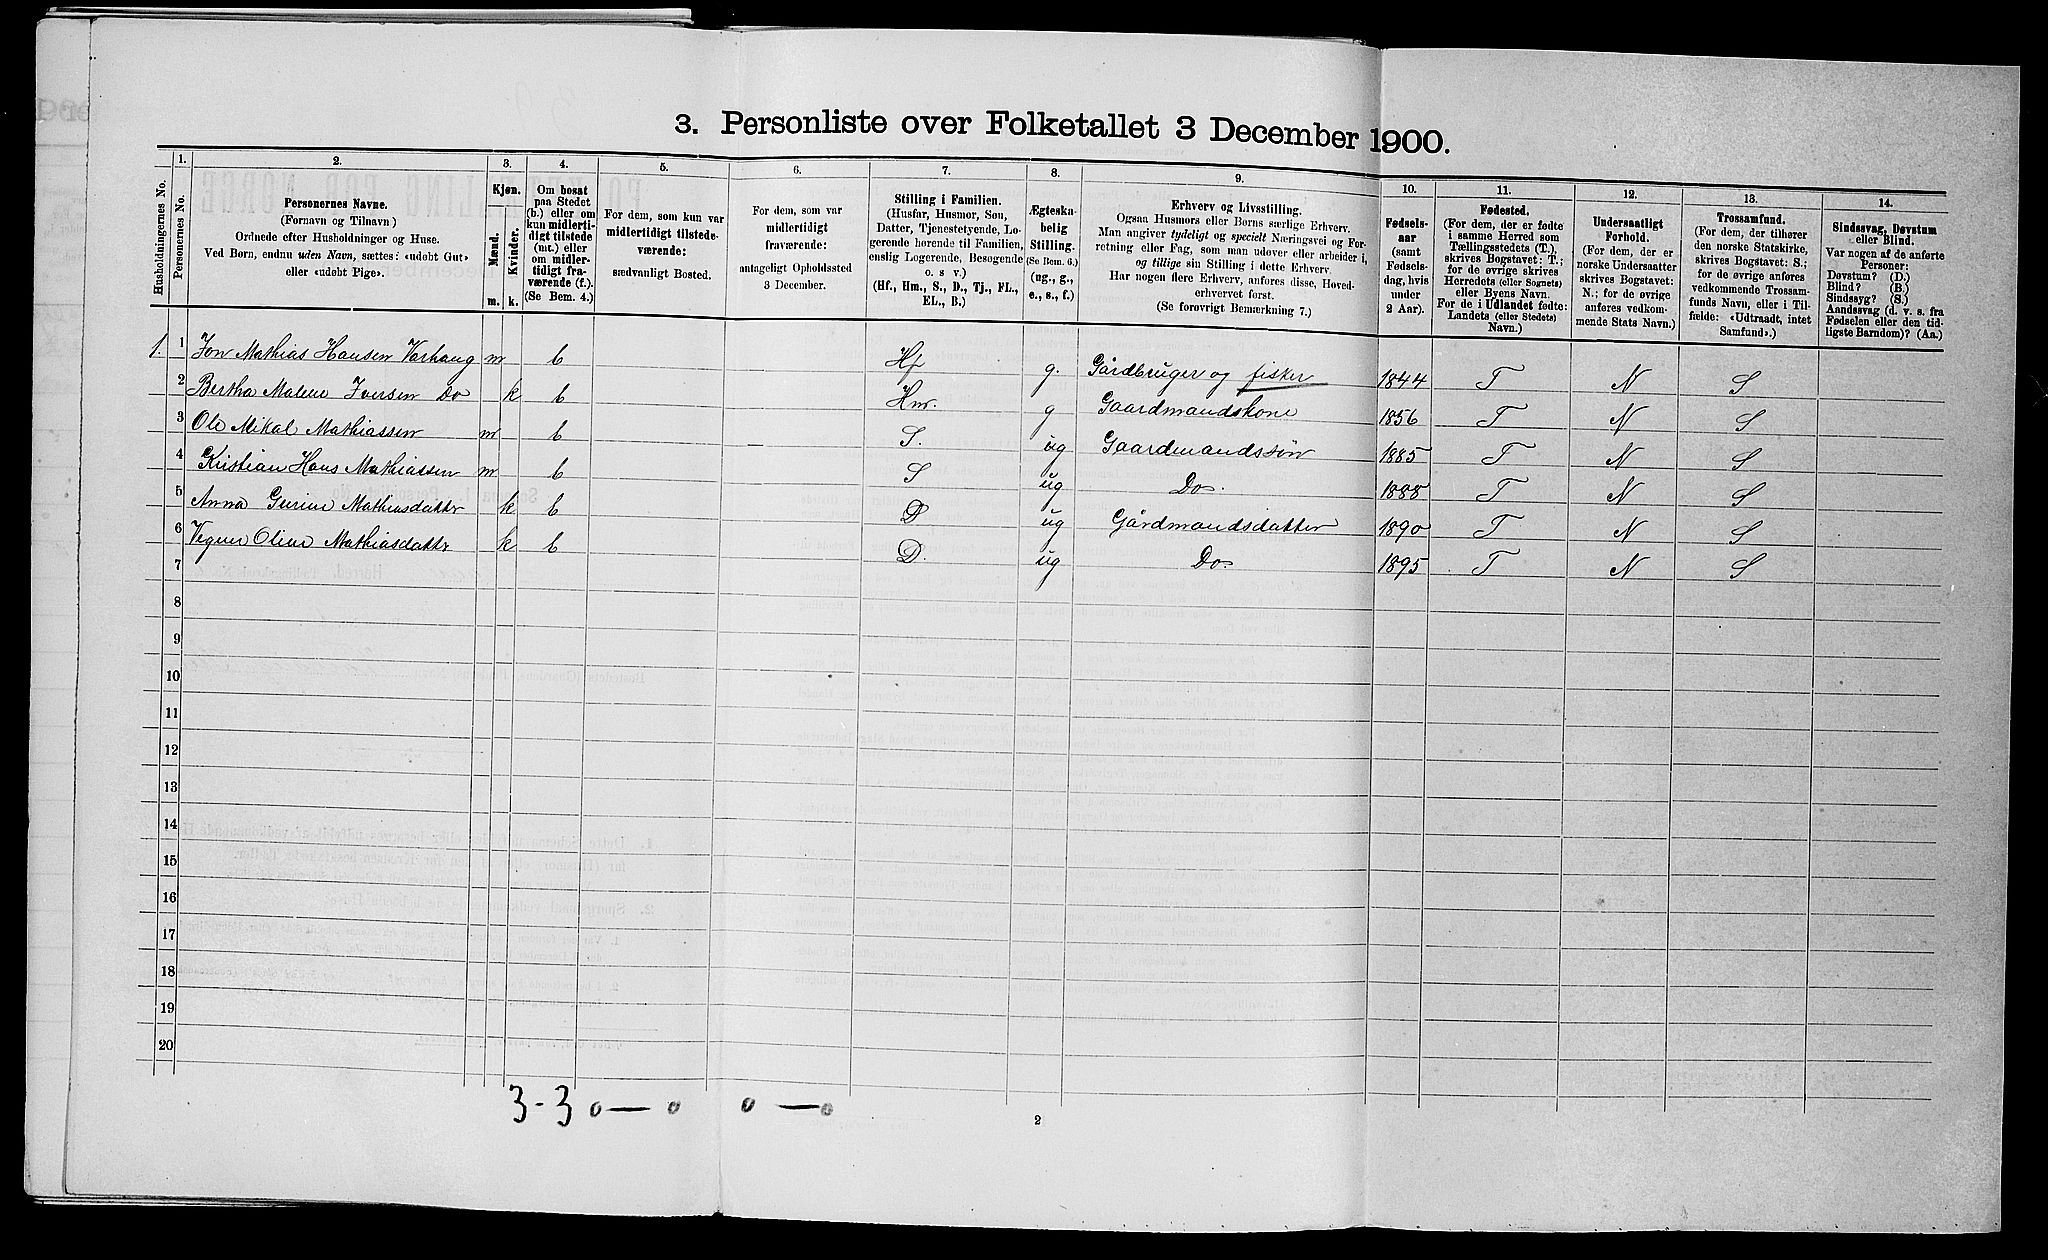 3. Personliste over Folketallet 3 December 1900.
Husholdningernes No.
1.
Personernes No.
2.
Personernes Navne.
(Fornavn og Tilnavn)
Ordnede efter Husholdninger og Huse.
Ved Børn, endnu uden Navn, sættes: «udøbt Gut»
eller «udøbt Pige».
3.
Kjøn.
Mænd.
Kvinder.
m.
k.
4.
Om bosat
paa Stedet
(b.) eller om
kun midlerti-
digt tilstede
(mt.) eller
om midler-
tidigt fra-
værende (f.).
(Se Bem. 4.)
5.
For dem, som kun var
midlertidigt tilstede-
værende:
sædvanligt Bosted.
6.
For dem, som var
midlertidigt
fraværende:
antageligt Opholdssted
3 December.
7.
Stilling i Familien.
(Husfar, Husmor, Søn,
Datter, Tjenestetyende, Lo-
gerende hørende til Familien,
enslig Logerende, Besøgende
o. s v.)
(Hf., Hm., S., D., Tj., FL.,
EL., B.)
8.
Ægteska-
belig
Stilling.
(Se Bem. 6.)
(ug., g.,
e., s., f.)
9.
Erhverv og Livsstilling.
Ogsaa Husmors eller Børns særlige Erhverv.
Man angiver tydeligt og specielt Næringsvei og For-
retning eller Fag, som man udøver eller arbeider i,
og tillige sin Stilling i dette Erhverv.
Har nogen flere Erhverv, anføres disse, Hoved-
erhvervet først.
(Se forøvrigt Bemærkning 7.)
10.
Fødsels-
aar
(samt
Fødsels-
dag, hvis
under
2 Aar).
11.
Fødested.
(For dem, der er fødte
i samme Herred som
Tællingsstedets (T.),
skrives Bogstavet: T.;
for de øvrige skrives
Herredets (eller Sognets)
eller Byens Navn.
For de i Udlandet fødte:
Landets (eller Stedets)
Navn.)
12.
Undersaatligt
Forhold.
(For dem, der er
norske Undersaatter
skrives Bogstavet:
N.; for de øvrige
anføres vedkom-
mende Stats Navn.)
13.
Trossamfund.
(For dem, der tilhører
den norske Statskirke,
skrives Bogstavet: S.;
for de øvrige anføres
vedkommende Trossam-
funds Navn, eller i Til-
fælde: «Udtraadt, intet
Samfund».)
14.
Sindssvag, Døvstum
eller Blind.
Var nogen af de anførte
Personer:
Døvstum? (D.)
Blind? (B.)
Sindssyg? (S.)
Aandssvag (d. v. s. fra
Fødselen eller den tid-
ligste Barndom)? (Aa.)
1. 1 Jon Mathias Hansen Varhaug m b Hf g. Gårdbruger og fisker 1844 T N S
2 Bertha Malene Iversen Do k b Hm. g Gaardmandskone 1856 T N S
3 Ole Mikal Mathiassen m b S. ug Gaardmandssøn 1885 T N S
4 Kristian Hans Mathiassen m b S ug Do. 1888 T N S
5 Anna Gurine Mathiasdatter k b D ug Gårdmandsdatter 1890 T N S
6 Oline Mathiasdatter k b D. ug Do. 1895 T N S
7
8
9
10
11
12
13
14
15
16
17
18
19
20
3-3 0—0 0—0
2